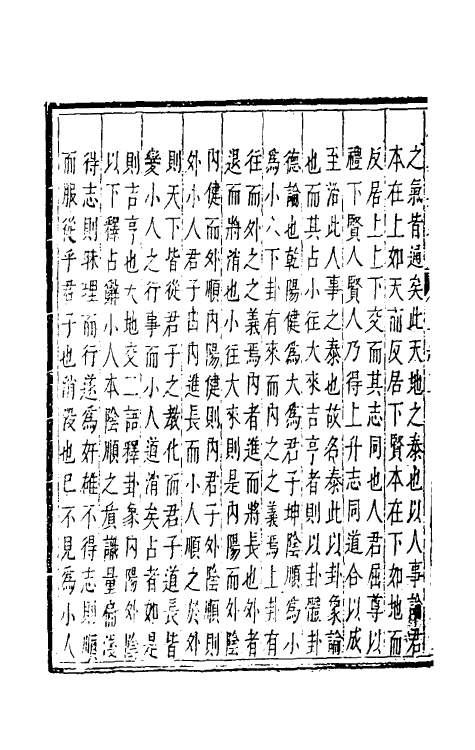 之氣皆通矣此天地之泰也以人事論君
本在上如天而反居下賢本在下如地而
反居上上下交而其志同也人君屈尊以
禮下賢人賢人乃得上升志同道合以成
至治此人事之泰也故名泰此以卦象論
也而其占小往大來吉亨者則以卦體卦
德論也乾陽健為大為君子坤陰順為小
為小人下卦有來而內之之義焉上卦有
往而外之之義焉內者進而將長也外者
退而將消也小往大來則是內陽而外陰
內健而外順內陽健則內君子外陰順則
外小人君子古內進長而小人順之於外
則天下皆從君子之教化而君子道長皆
變小人之行事而小人道消矣占者如是
則吉亨也天地交二語釋卦象內陽外陰
以下釋占辭小人本陰順之質識量偏淺
得志則殊理而行遂為奸雄不得志則順
而服從乎君子也消沒也已不見為小人